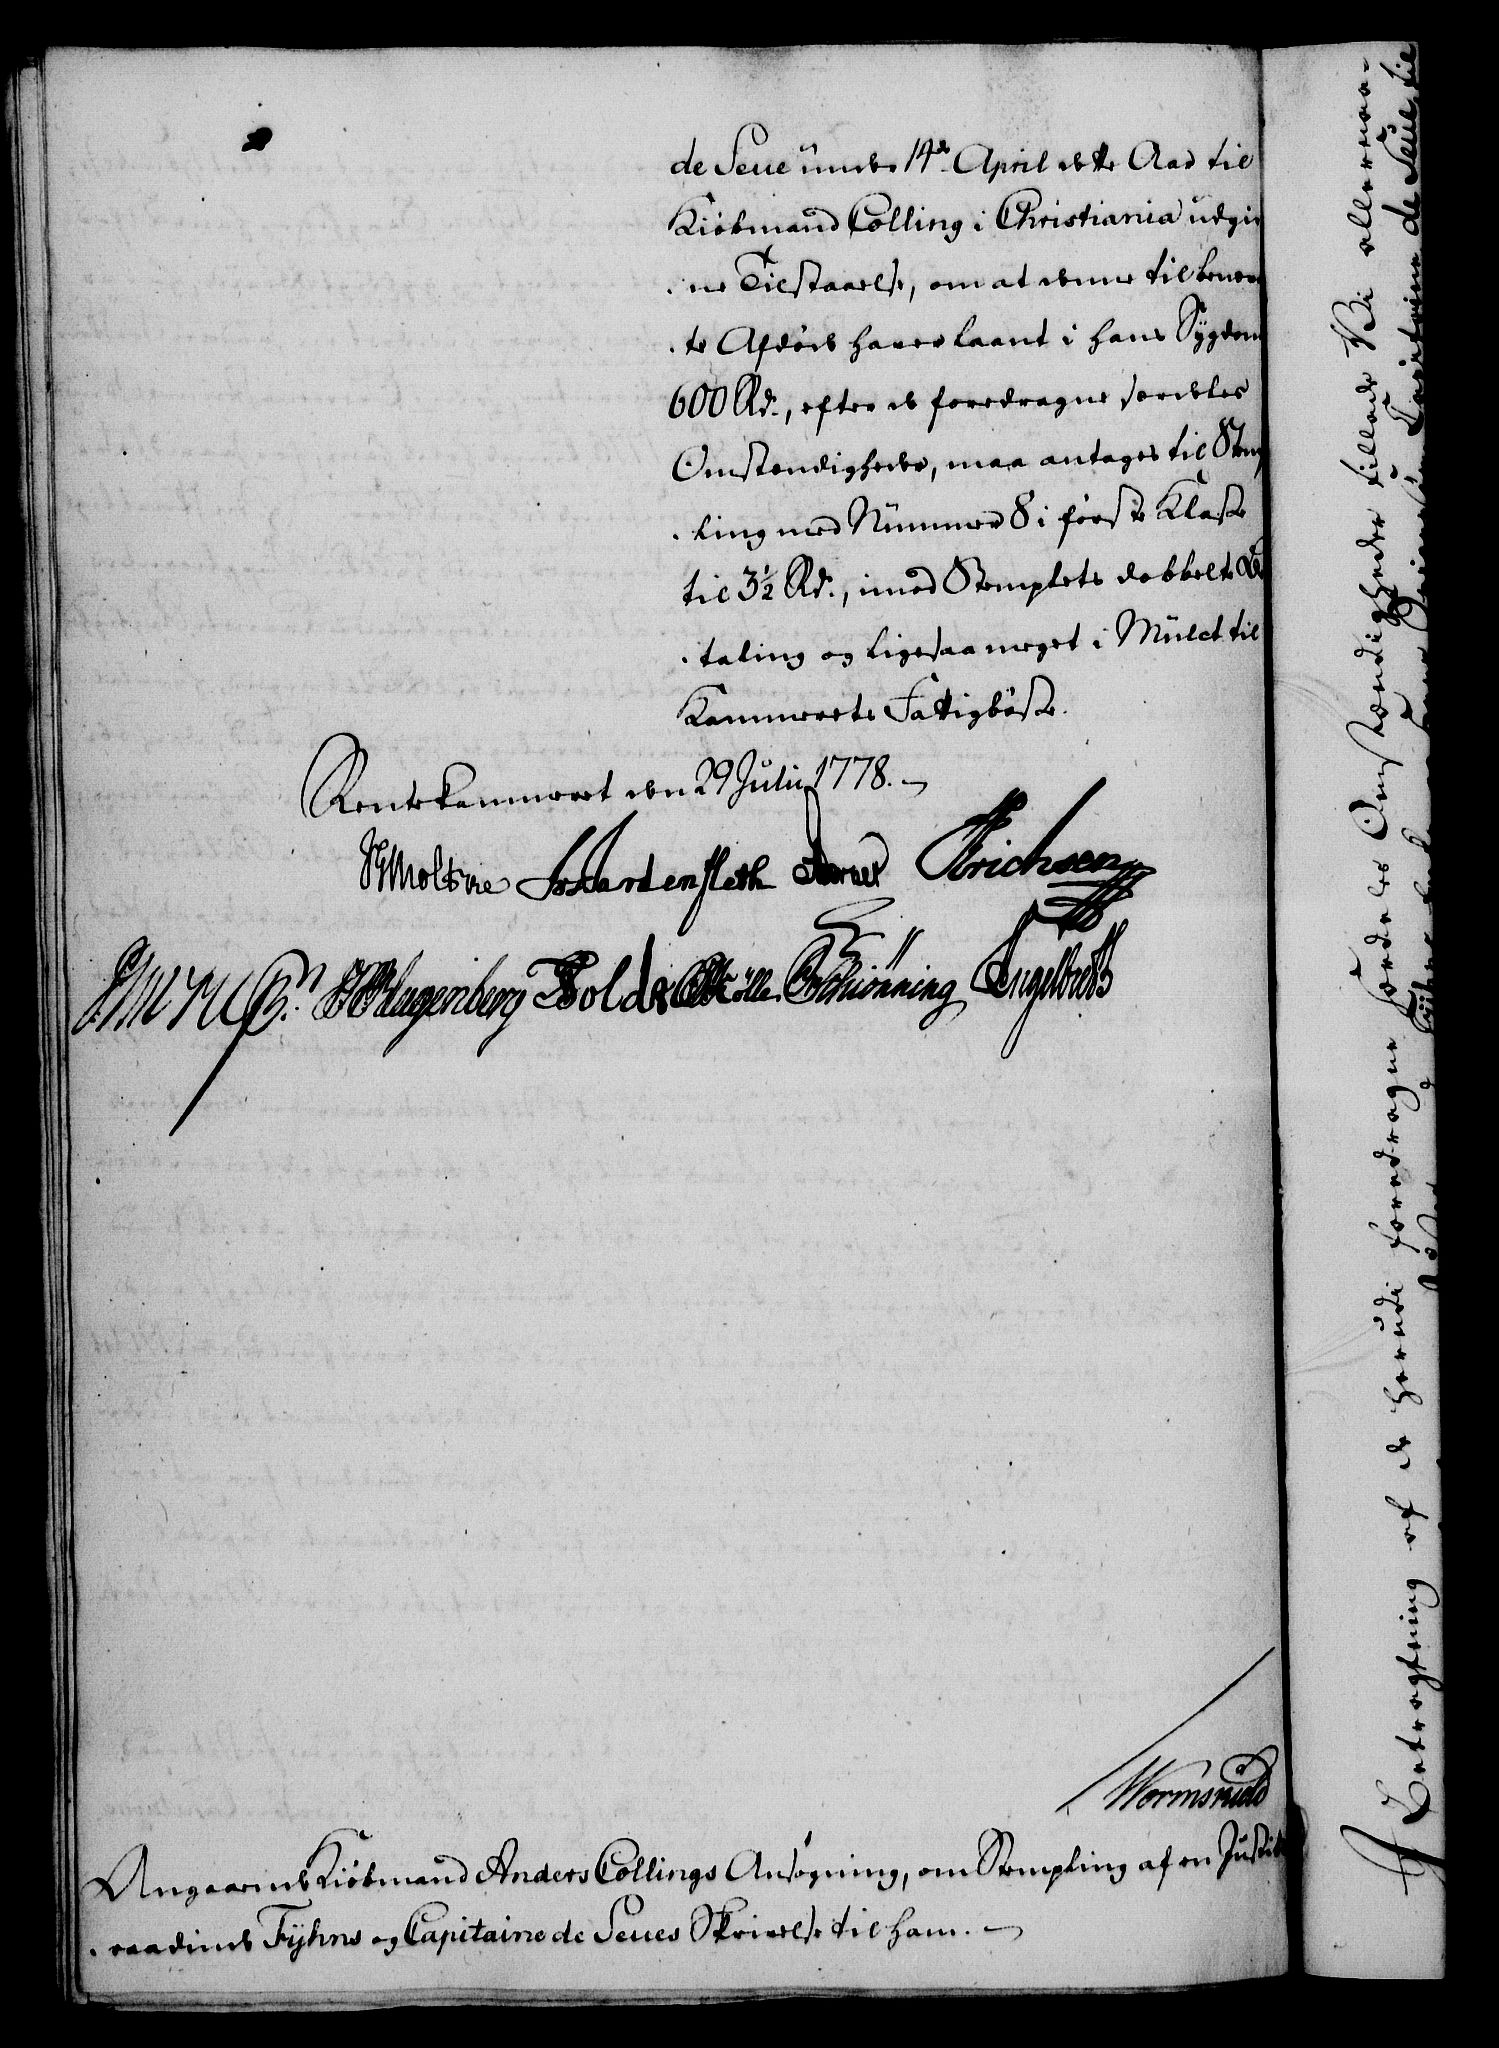 de Seue under 14de April dette Aar til
Kiöbmand Colling i Christiania udgiv
ne Tilstaaelse, om at denne til benævn
te Afdöde haver laant i hans Sygdom
600 Rd., efter de foredragne særdeles
Omstændigheder, maa antages til Stemp
ling med Nummer 8 i förste Klasse
til 3½ Rd., imod Stemplets dobbelte Be
taling og ligesaa meget i Mulct til
Kammerets Fattigbösse.
Rentekammeret den 29 Julii 1778.
Moltke Ardenfleth Erichsen
Klagenberg Holde Schiönning Engelbreth
Wormskiold
Angaaende Kiöbmand Anders Collings Ansögning, om Stempling af en Justitz
raadinde Fyhns og Capitaine de Seues Skrivelse til ham.
I Betragtning af de herudi foredragne særdeles Omstændigheder tillade Vi allernaa-
de Seue til